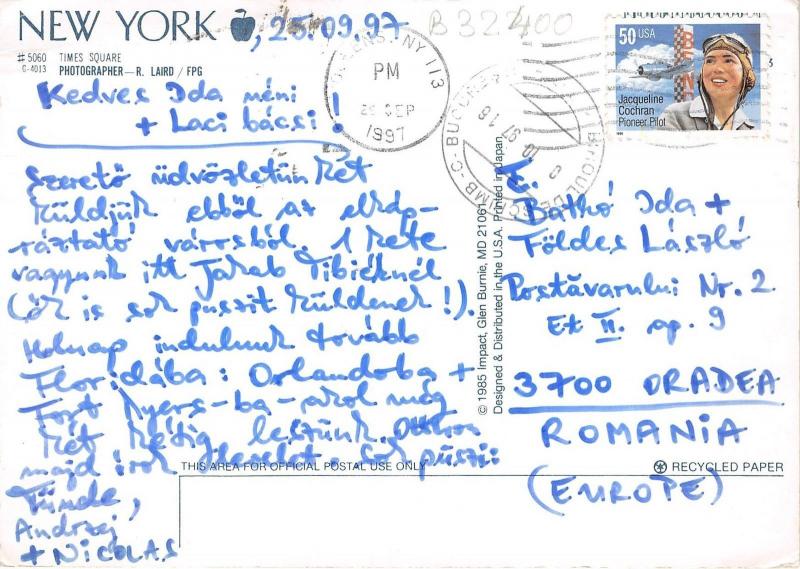 NEW YORK, 25.09.97
B32400
# 5060 TIMES SQUARE
C-4013 PHOTOGRAPHER—R. LAIRD / FPG
QUEENS, NY 113
PM
SEP
1997
50 USA
Jacqueline
Cochran
Pioneer Pilot
Kedves Ida néni
+ Laci bácsi!
Szerető üdvözletünket
küldjük ebből az elkáp-
ráztató városból. 1 hete
vagyunk itt Jakab Tibiéknél
(ők is sok puszit küldenek!).
Holnap indulunk tovább
Floridába: Orlandoba +
Fort Myers-ba - ahol még
két hétig leszünk. Otthon
majd írok Sok puszi:
Tünde,
Andrzej
+ NICOLAS
© 1985 Impact, Glen Burnie, MD 21061
Designed & Distributed in the U.S.A. Printed in Japan
Bathó Ida +
Földes László
Postăvarului Nr. 2
Et II. ap. 9
3700 ORADEA
ROMANIA
(EUROPE)
THIS AREA FOR OFFICIAL POSTAL USE ONLY
RECYCLED PAPER